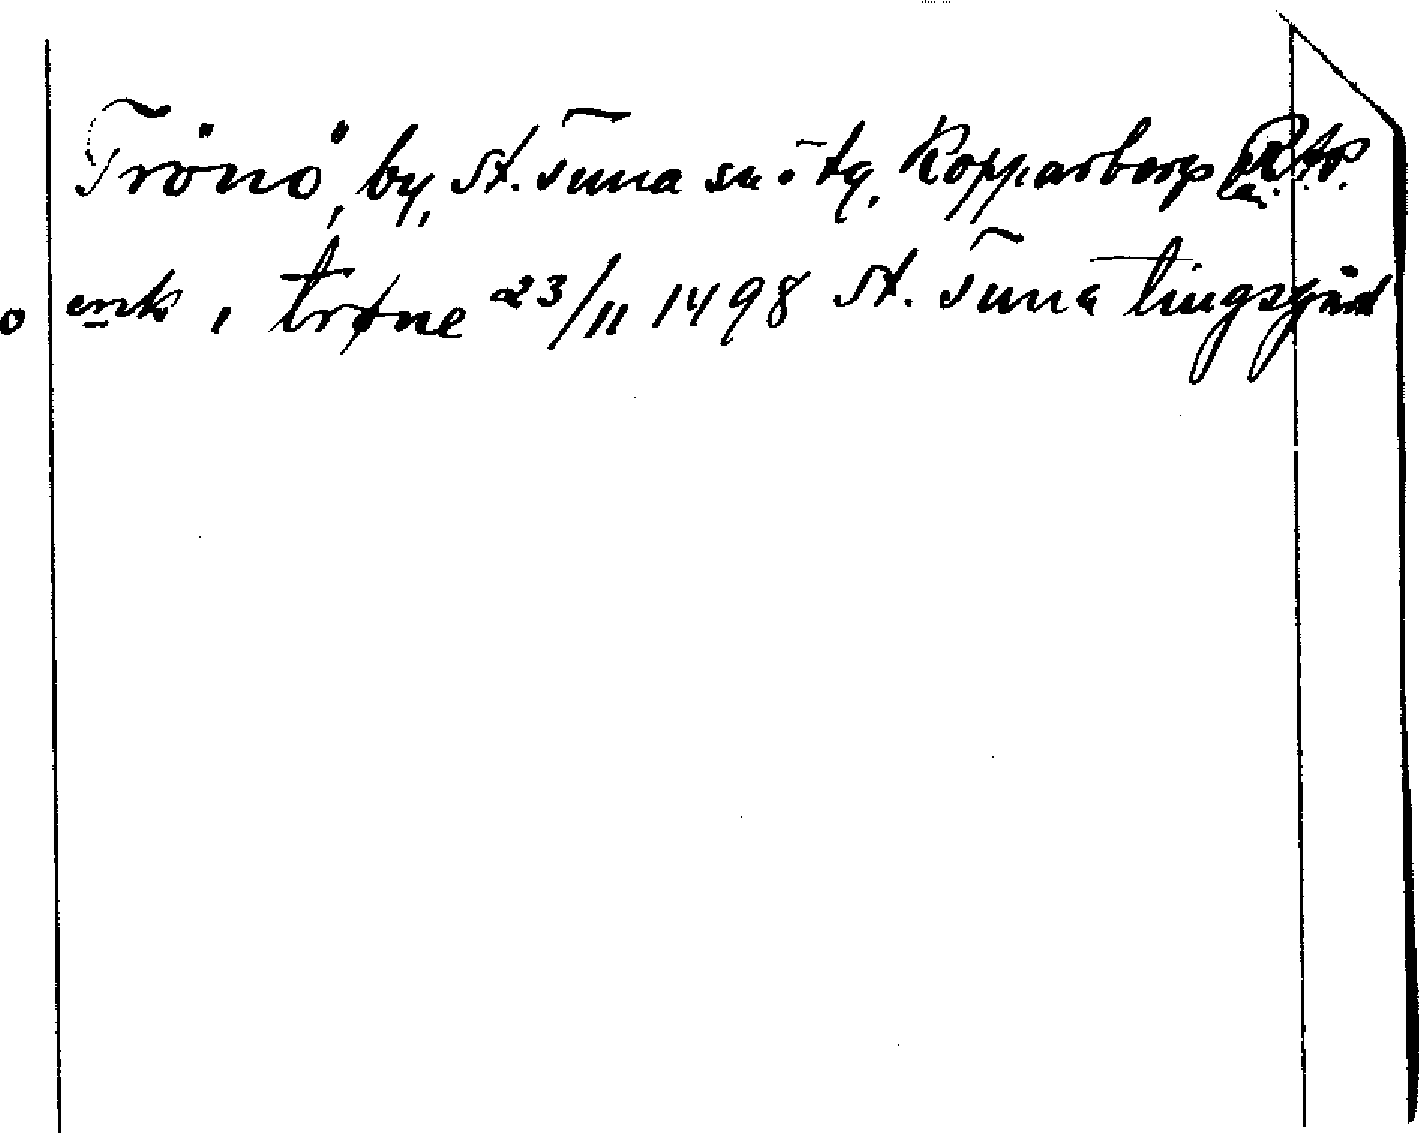 Trönö, by, St. Tuna sn o tg. Kopparbergs
enk, i trøne 23/11 1498 St. Tuna tingsgård